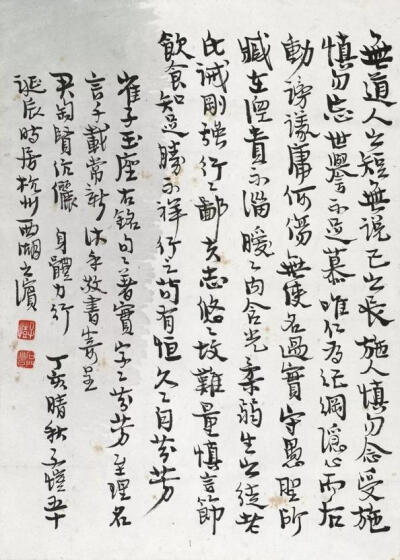 無道人之短無說己之長施人慎勿念受施
慎勿忘世譽不足慕唯仁為紀綱隱心而后
動謗議庸何傷無使名過實守愚聖所
臧在涅貴不淄曖々內含光柔弱生之徒老
氏誡剛強行々鄙夫志悠々故難量慎言節
飲食知足勝不祥行之苟有恒久々自芬芳
崔子玉座右銘句々著實字々芬芳至理名
言千載常新沐手敬書寄呈
賢伉儷 身體力行 丁亥晴秋子愷五十
誕辰時居杭州西湖之濱